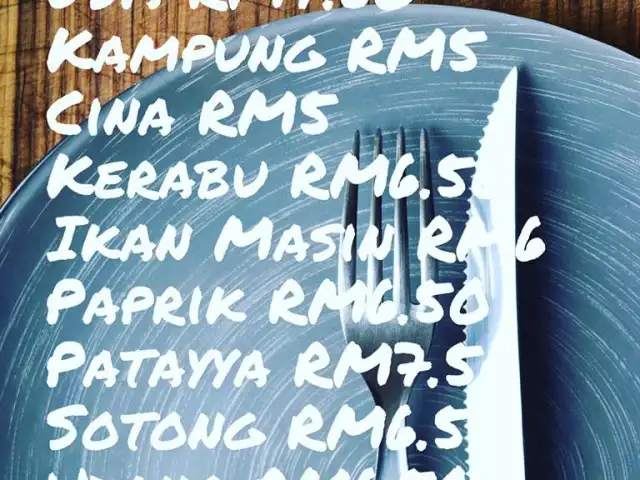 Kampung RM5
Cina RM5
Kerabu RM6.5
Ikan Masin RM6
Paprik RM6.50
Patayya RM7.5
Sotong RM6.5